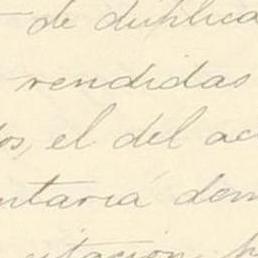 de duplica
rendidas
os, el del ac
ntaria dem
citación, h